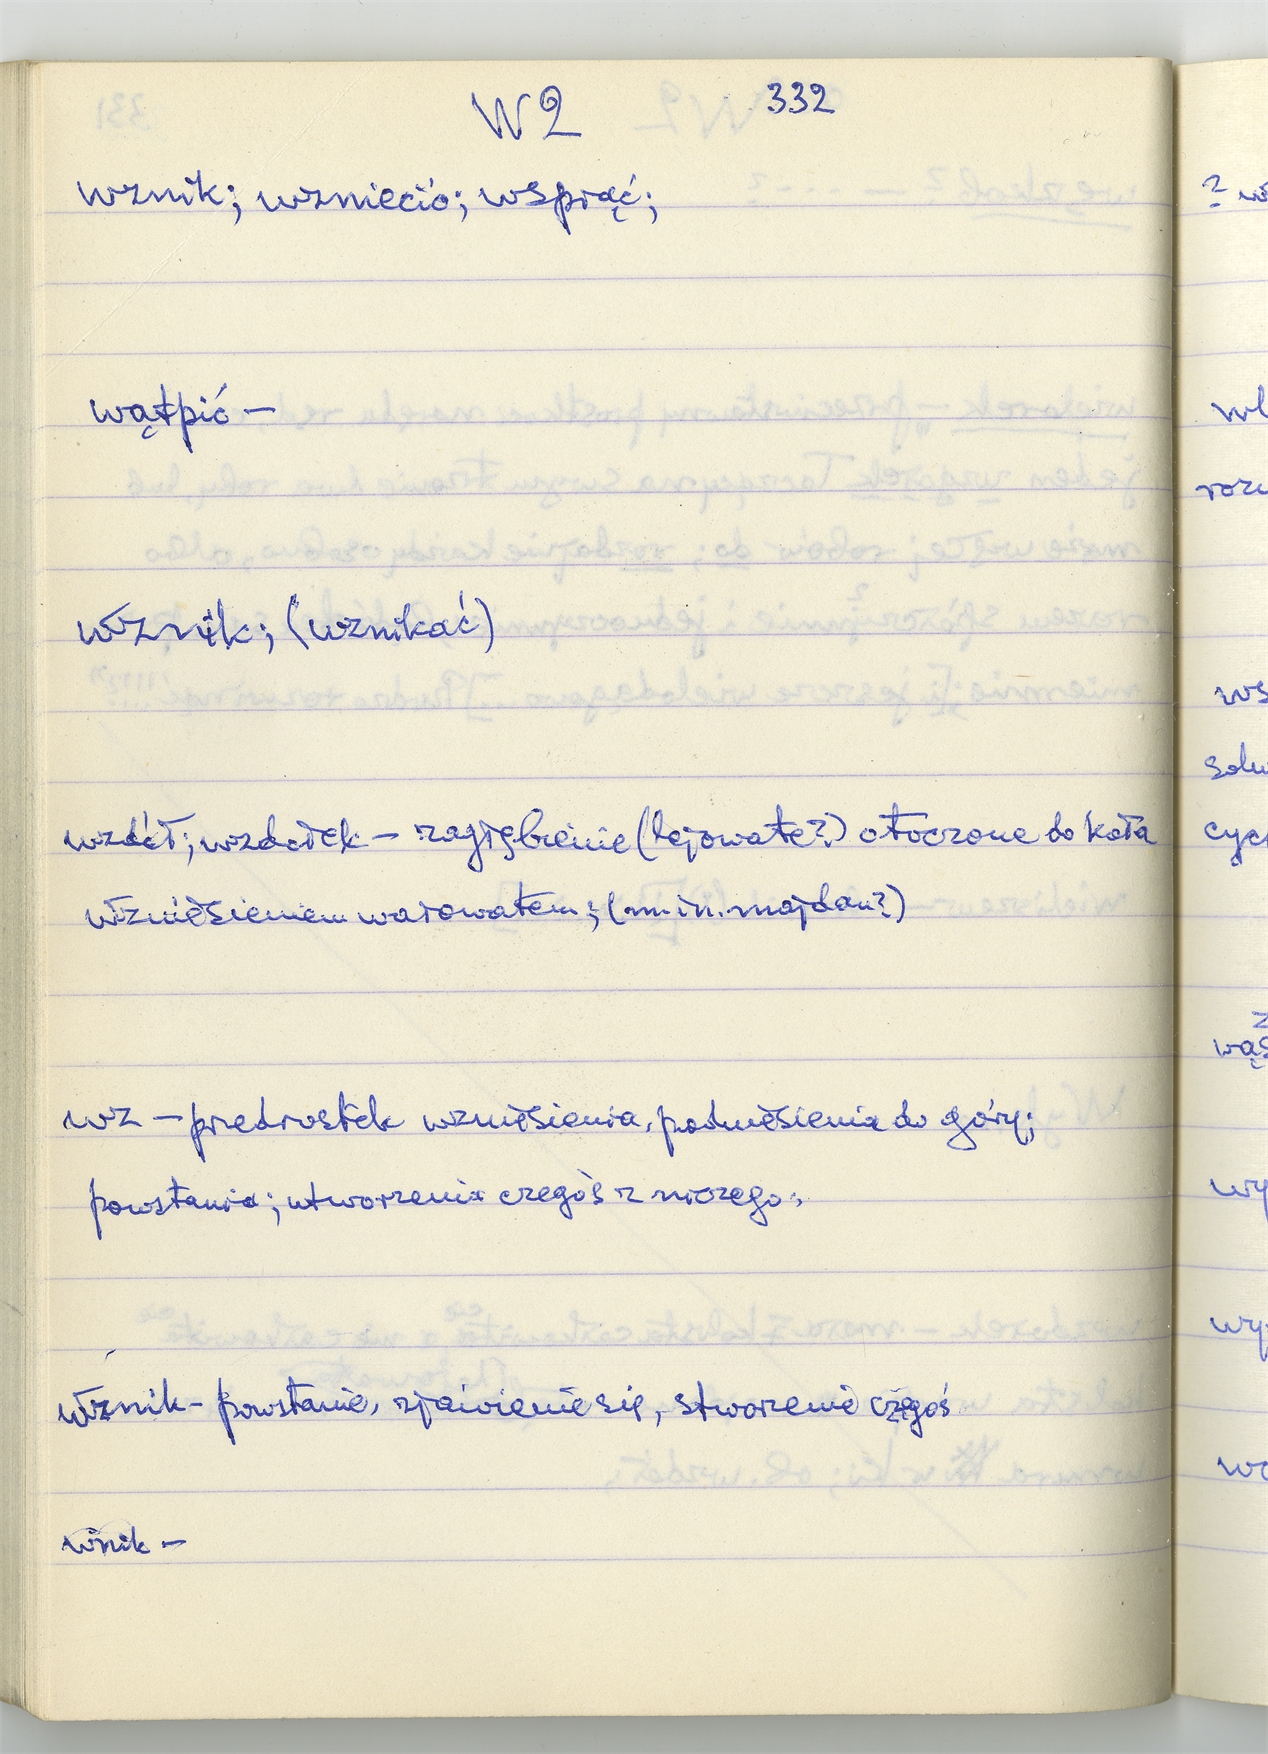 W2 332
wznik; wzniecić; wsprąć;
wątpić —
wznik; (wznikać)
wzdół; wzdołek — zagłębienie (lejowate?) otoczone do koła
wzniesieniem wałowatem; (m.in. majdan?)
wz — predrostek wzniesienia, podniesienia do góry;
powstania; utworzenia czegoś z niczego;
wznik — powstanie, zjawienie się, stworzenie czegoś
wnik —